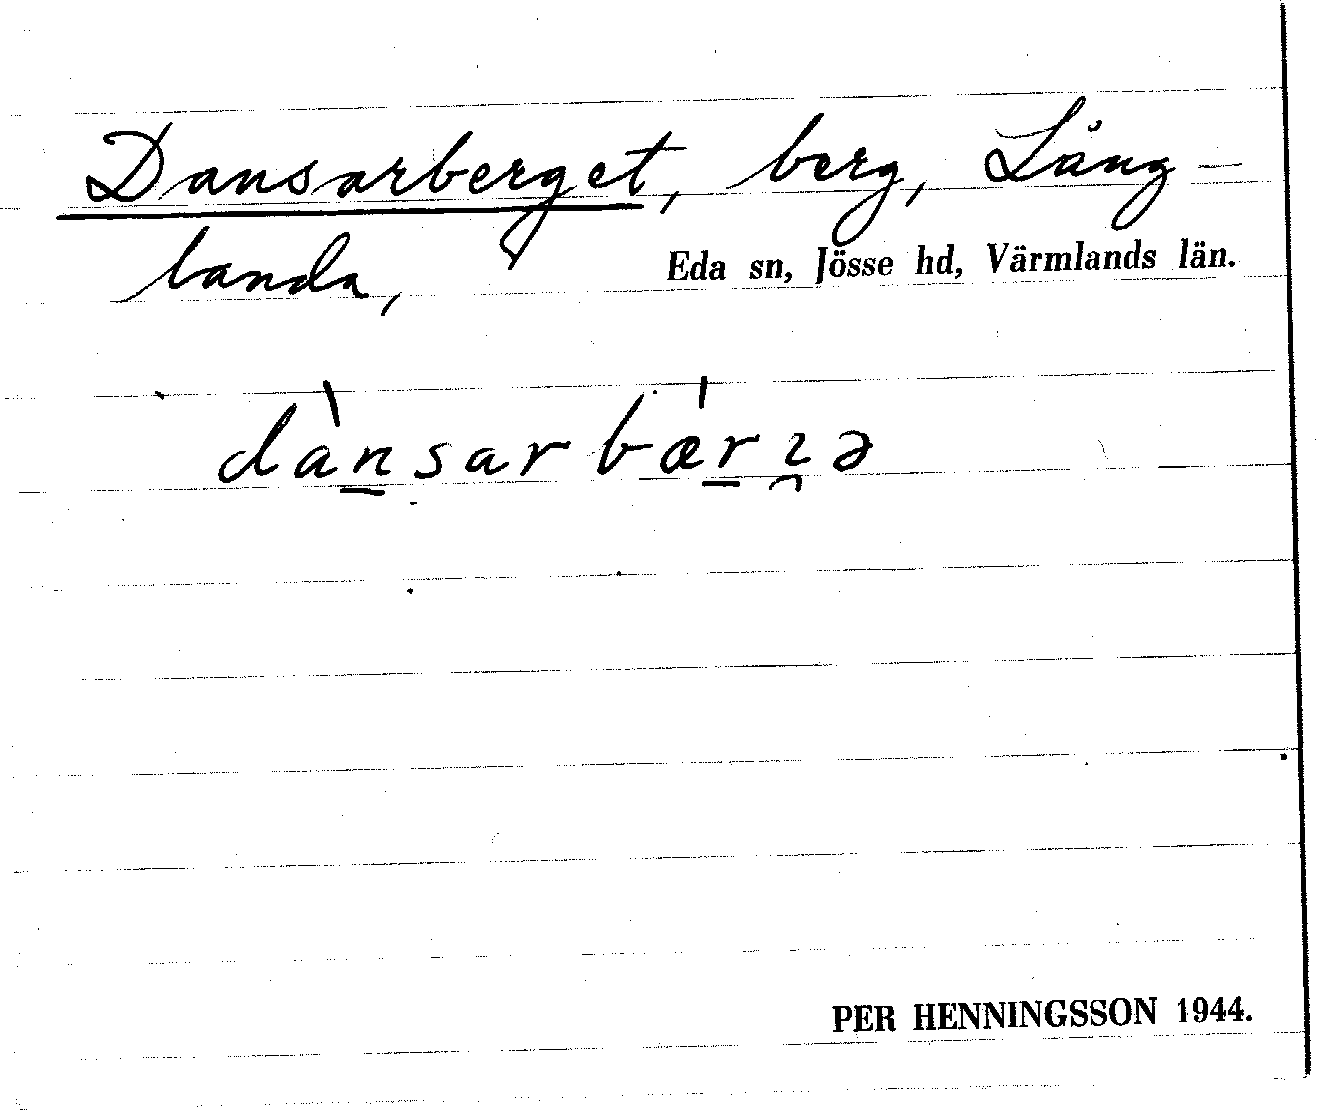 Dansarberget, berg, Lång-
landa, Eda sn, Jösse hd, Värmlands län.
dànsarbærɿ̯ə
PER HENNINGSSON 1944.